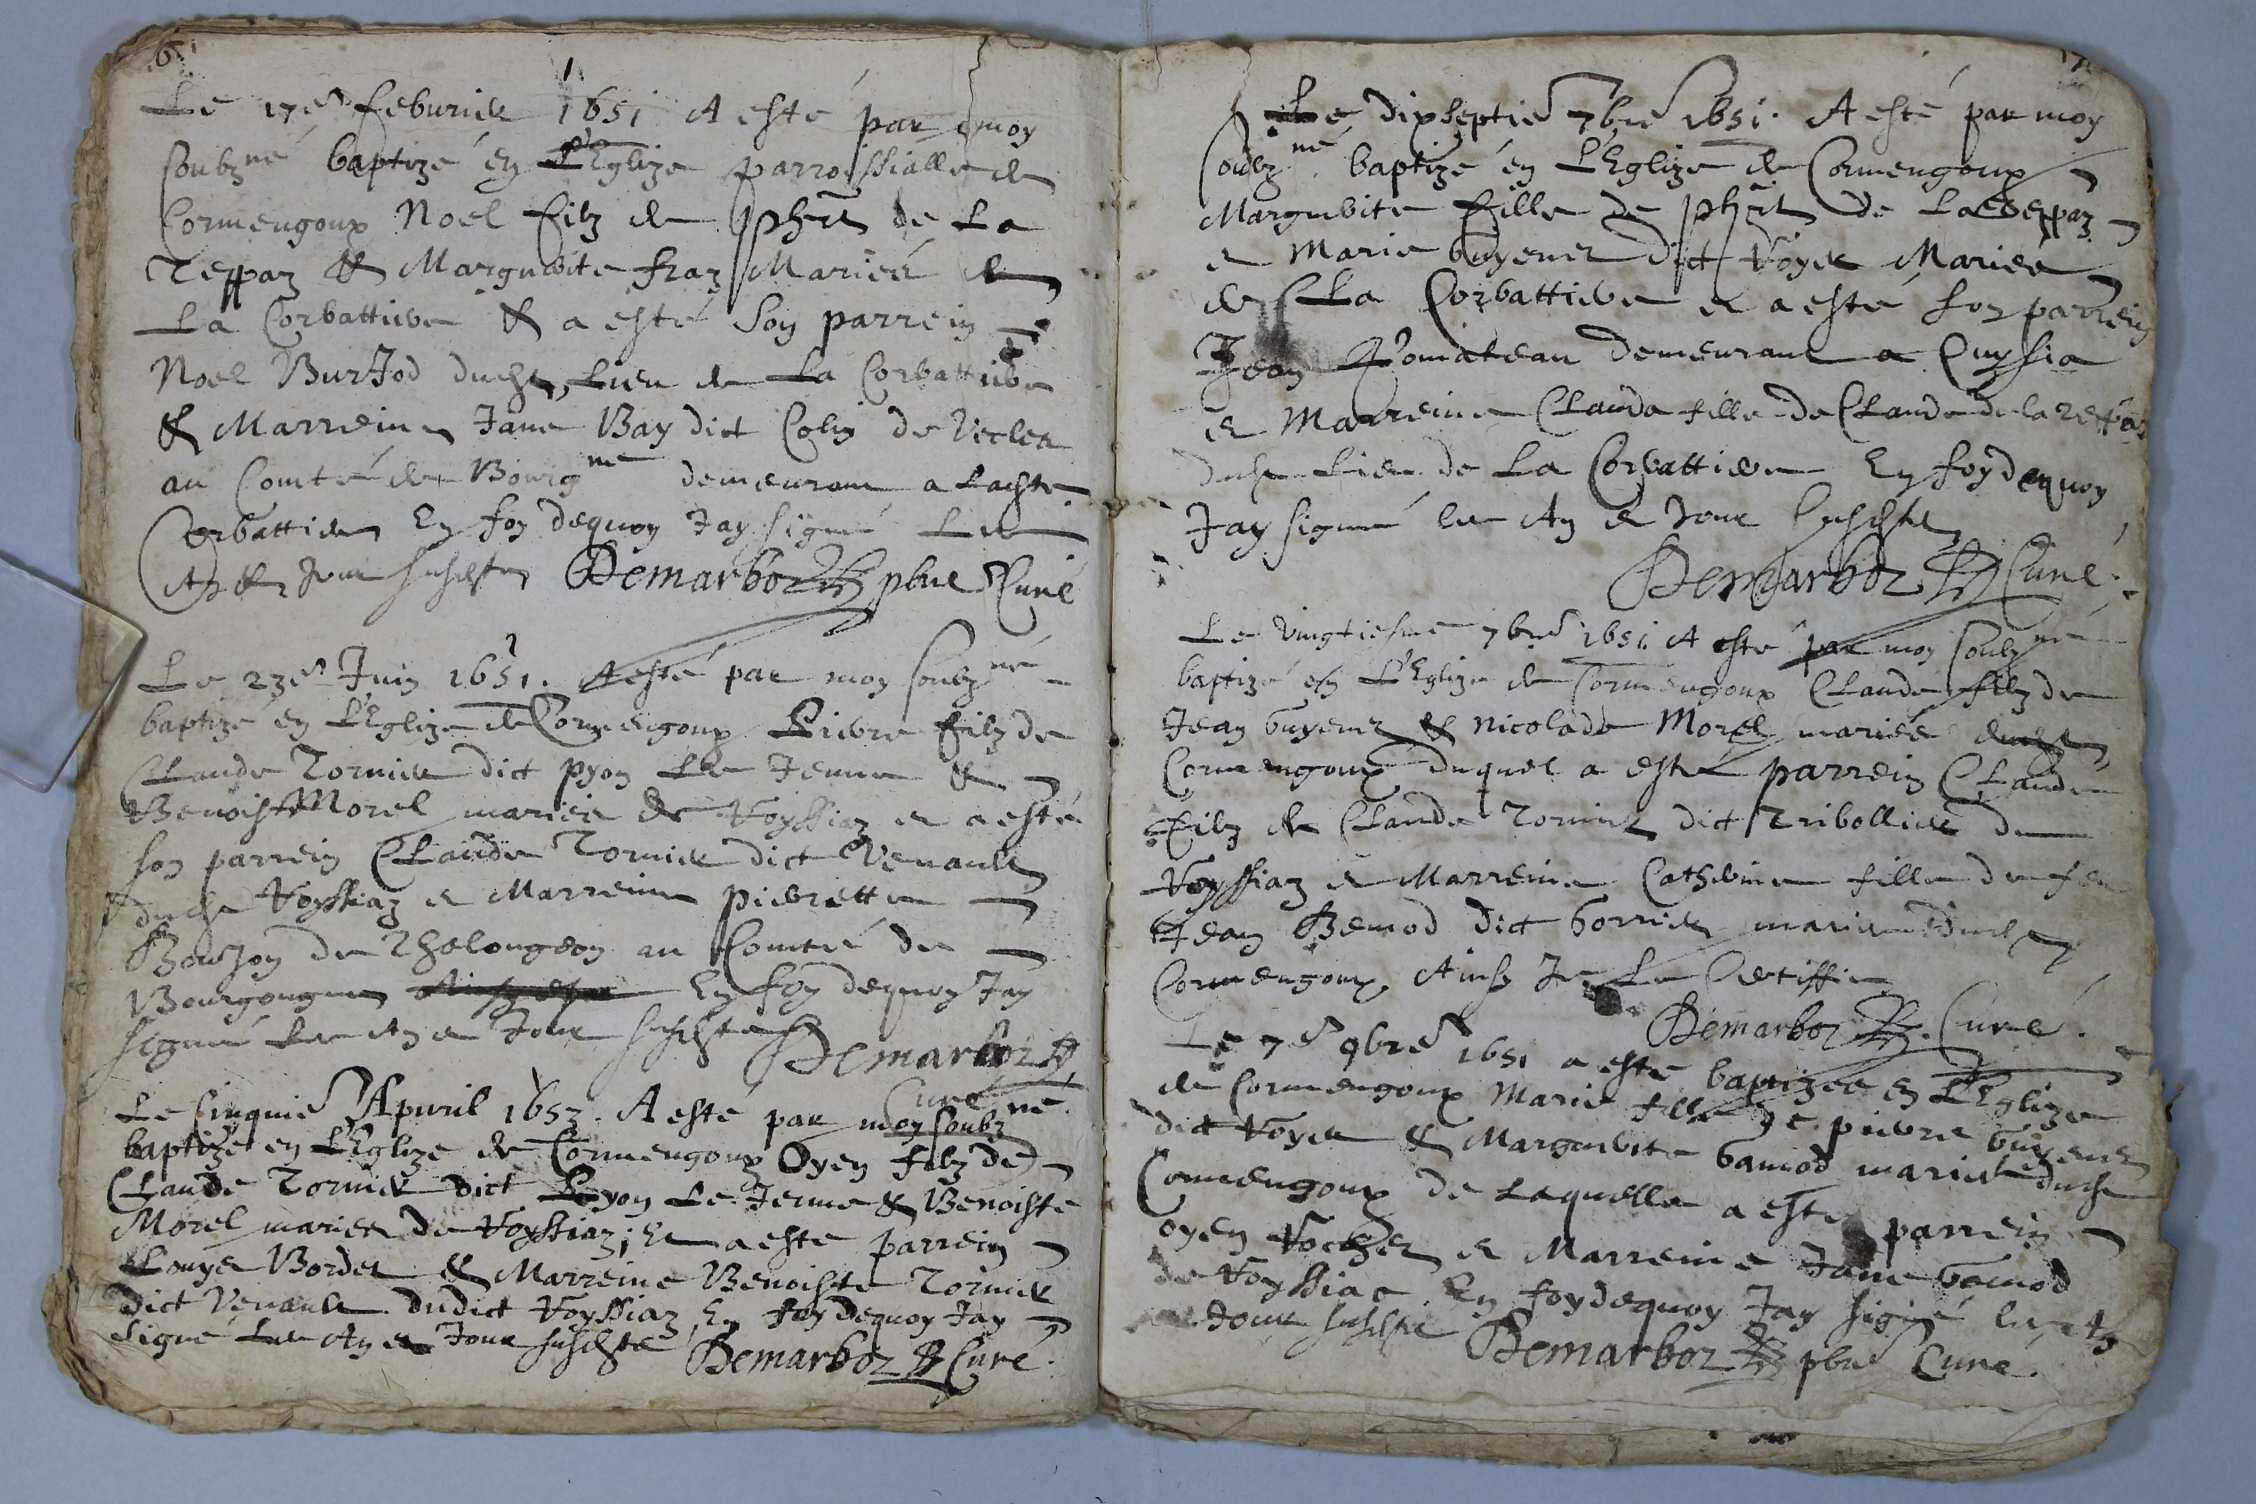 6
Le 17e feburier 1651 A esté par moy
soubzné baptizé en L'Eglize parroissialle de
Cormengoux Noel filz de phrt de La
Teppaz & Marguerite fraz Mariés de
La Corbattiere & a esté Son parrein
Noel BurJod duché Lieu de La Corbattiere
& Marreine Jane Bay dict Colin de Vecles
au Comté de Bourgne demeurant a Lachte
Corbattiere En foy dequoy Jay signé Les
An & Jour suschte Demarboz pbre Curé
Le 23e Juin 1651. A esté par moy soubzné
baptizé en L'Eglize de Cormengoux Pierre filz de
Claude Tornier dict pyon Le Jeune &
Benoiste Morel mariés de Voyssiaz & a esté
son parrein Claude Tornier dict Venault
duche Voyssiaz & Marreine pierrette
BourJon de Thelongeon au Comté de
Bourgougne En foy dequoy Jay
signé Les An & Jour suschte Demarboz
Curé
Le Cinquie Apuril 1653. A esté par moy soubzné
baptizé en L'Eglize de Cormengoux Oyen filz de
Claude Tornier dict Pyon Le Jeune & Benoiste
Morel mariés de Voyssiaz; Et a esté parrein
Louys Bordet & Marreine Benoiste Tornier
dict Venault dudict Voyssiaz En foy dequoy Jay
signé Les An & Jour suschte Demarboz Curé
Le dixseptie 7bre 1651. A esté par moy
soubzné baptizé en L'Eglize de Cormengoux
Marguerite fille de phrt de La Teppaz
& Marie buyenet dict Voyer Mariés
de La Corbattiere & a esté son parrein
Jean Pomateau demeurant a Cuysia
& Marreine Claude fille de Claude de la
duche Lieu de La Corbattiere En foy dequoy
Jay signé les An & Jour suschte
Demarboz Curé
Le vingtiesme 7bre 1651 A esté par moy soubzné
baptizé en L'Eglize de Cormengoux Claude filz de
Jean buyenet & Nicolade Morel mariés duche
Cormengoux duquel a esté parrein Claude
filz de Claude Tornier dict Tribollier de
Voyssiaz & Marreine Catherine fille de feu
Jean Benod dict borrier mariés duche
Cormengoux, Ainsy Je Le Certiffie
Demarboz Curé
Le 7e 9bre 1651 a esté baptizée en L'Eglize
de Cormengoux Marie fille de pierre buyenet
dict Voyer & Marguerite bamod mariés duche
Cormengoux de Laquelle a esté parrein
oyen Vochet & Marreine Jane bamod
de Voyssiac En foy dequoy Jay signé les An
Jour suschte Demarboz pbre Curé